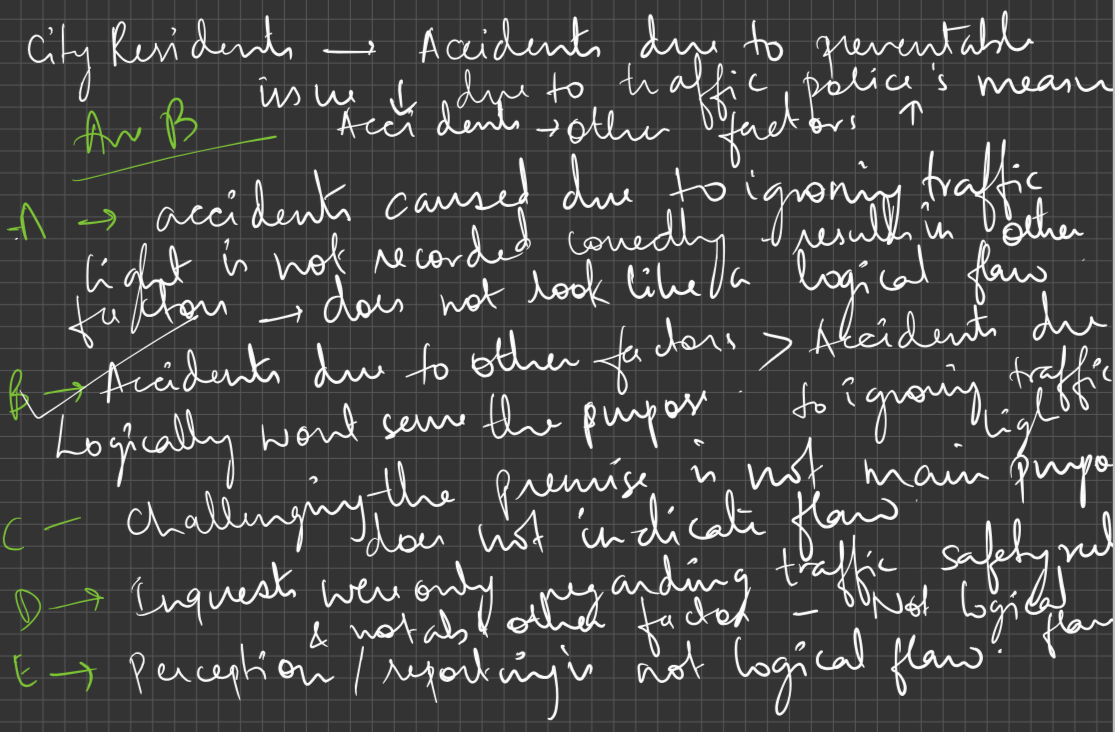 City Residents → Accidents due to preventable
issue ↓ due to traffic police's measur
Ans B Accidents → other factors ↑
A → accidents caused due to ignoring traffic
light is not recorded correctly & results in other
factors → does not look like a logical flaw
B → Accidents due to other factors > Accidents due
to ignoring traffic light
Logically wont serve the purpose.
C - Challenging the premise is not main purpo
does not indicate flaw
D → Inquests were only regarding traffic safety rul
& not abt other factor - Not logical flaw
E → Perception / reporting is not logical flaw.